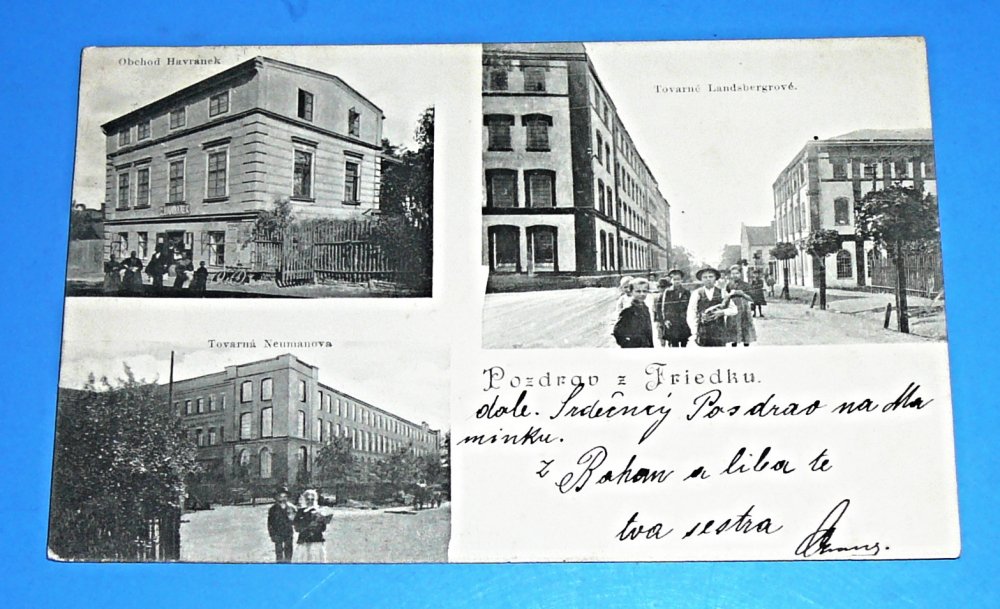 Obchod Havranek
Tovarně Landsbergrové.
Tovarná Neumanova
Pozdrav z Friedku.
dole. Srdečný Pozdrav na Ma
minku.
z Bohem a líbá te
tva sestra